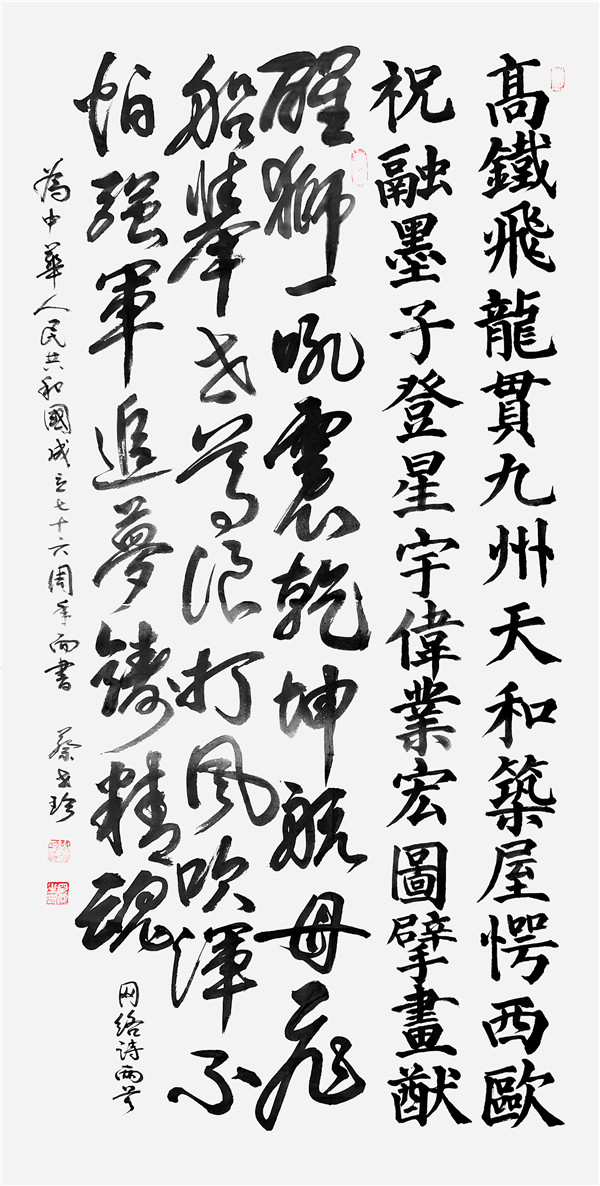 髙鐵飛龍貫九州天和築屋愕西歐
祝融墨子登星宇偉業宏圖擘畫猷
醒獅一吼震乾坤航母飛
船舉世尊浪打風吹渾不
怕強軍追夢鑄精魂
网络诗兩首
為中華人民共和國成立七十六周年而書 蔡世珍